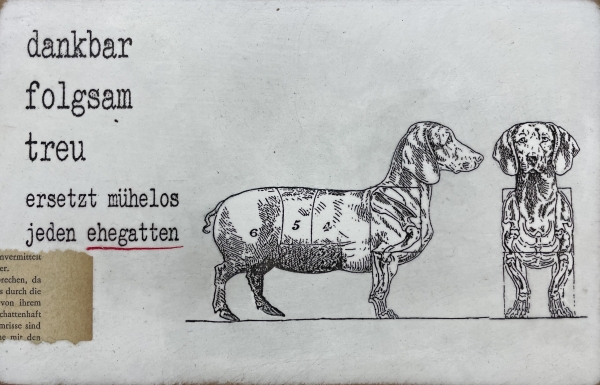 dankbar
folgsam
treu
ersetzt mühelos
jeden ehegatten
nvermitten
er.
rechen, da
s durch die
von ihrem
chattenhaft
mrisse sind
e mir den
6
5